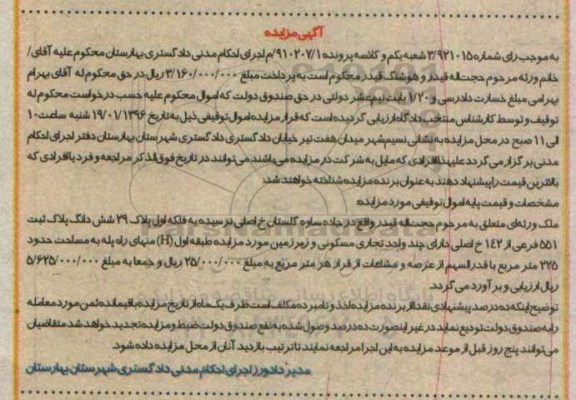 آگهی مزایده
به موجب رای شماره ۳/۹۲۱۰۱۵ شعبه یکم و کلاسه پرونده ۹۱۰۲۰۷/۱/م اجرای احکام مدنی دادگستری بهارستان محکوم علیه آقای/
خانم ورثه مرحوم حجت اله قیدر و هوشنگ قیدر محکوم است به پرداخت مبلغ ۳/۱۶۰/۰۰۰/۰۰۰ ریال در حق محکوم له آقای بهرام
بهرامی مبلغ خسارت دادرسی و ۱/۲۰ بابت نیم عشر دولتی در حق صندوق دولت که اموال محکوم علیه حسب درخواست محکوم له
توقیف و توسط کارشناس منتخب دادگاه ارزیابی گردیده است که قرار مزایده اموال توقیفی ذیل به تاریخ ۱۹/۰۱/۱۳۹۶ شنبه ساعت ۱۰
الی ۱۱ صبح در محل مزایده به نشانی نسیم شهر میدان هفت تیر خیابان دادگستری دادگستری شهرستان بهارستان دفتر اجرای احکام
مدنی برگزار می گردد علیهذا افرادی که مایل به شرکت در مزایده می باشند می توانند در تاریخ فوق الذکر مراجعه و فرد یا افرادی که
بالاترین قیمت را پیشنهاد دهند به عنوان برنده مزایده شناخته خواهند شد.
مشخصات و قیمت پایه اموال توقیفی مورد مزایده:
ملک ورثه ای متعلق به مرحوم حجت اله قیدر واقع در جاده ساوه گلستان خ اصلی نرسیده به فلکه اول پلاک ۲۹ شش دانگ پلاک ثبت
۵۵۱ فرعی از ۱۴۲ خ اصلی دارای چند واحد تجاری مسکونی و زیرزمین مورد مزایده طبقه اول (H) منهای راه پله به مساحت حدود
۲۲۵ متر مربع با قدرالسهم از عرصه و مشاعات از قرار هر متر مربع به مبلغ ۲۵/۰۰۰/۰۰۰ ریال و جمعا به مبلغ ۵/۶۲۵/۰۰۰/۰۰۰
ریال ارزیابی و برآورد می گردد.
توضیح اینکه ده درصد پیشنهادی نقدا از برنده مزایده اخذ و نامبرده مکلف است ظرف یک ماه از تاریخ مزایده باقیمانده ثمن مورد معامله
را به صندوق دولت تودیع نماید در غیر اینصورت ده درصد وصول شده به نفع صندوق دولت ضبط و مزایده تجدید خواهد شد متقاضیان
می توانند پنج روز قبل از موعد مزایده به این اجرا مراجعه نمایند تا ترتیب بازدید آنان از محل مزایده داده شود.
مدیر دادورز اجرای احکام مدنی دادگستری شهرستان بهارستان